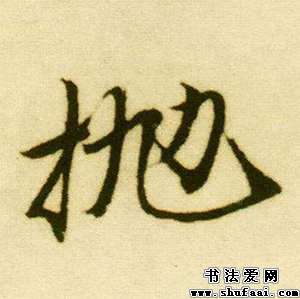 抛
书法爱网
www.shufaai.com